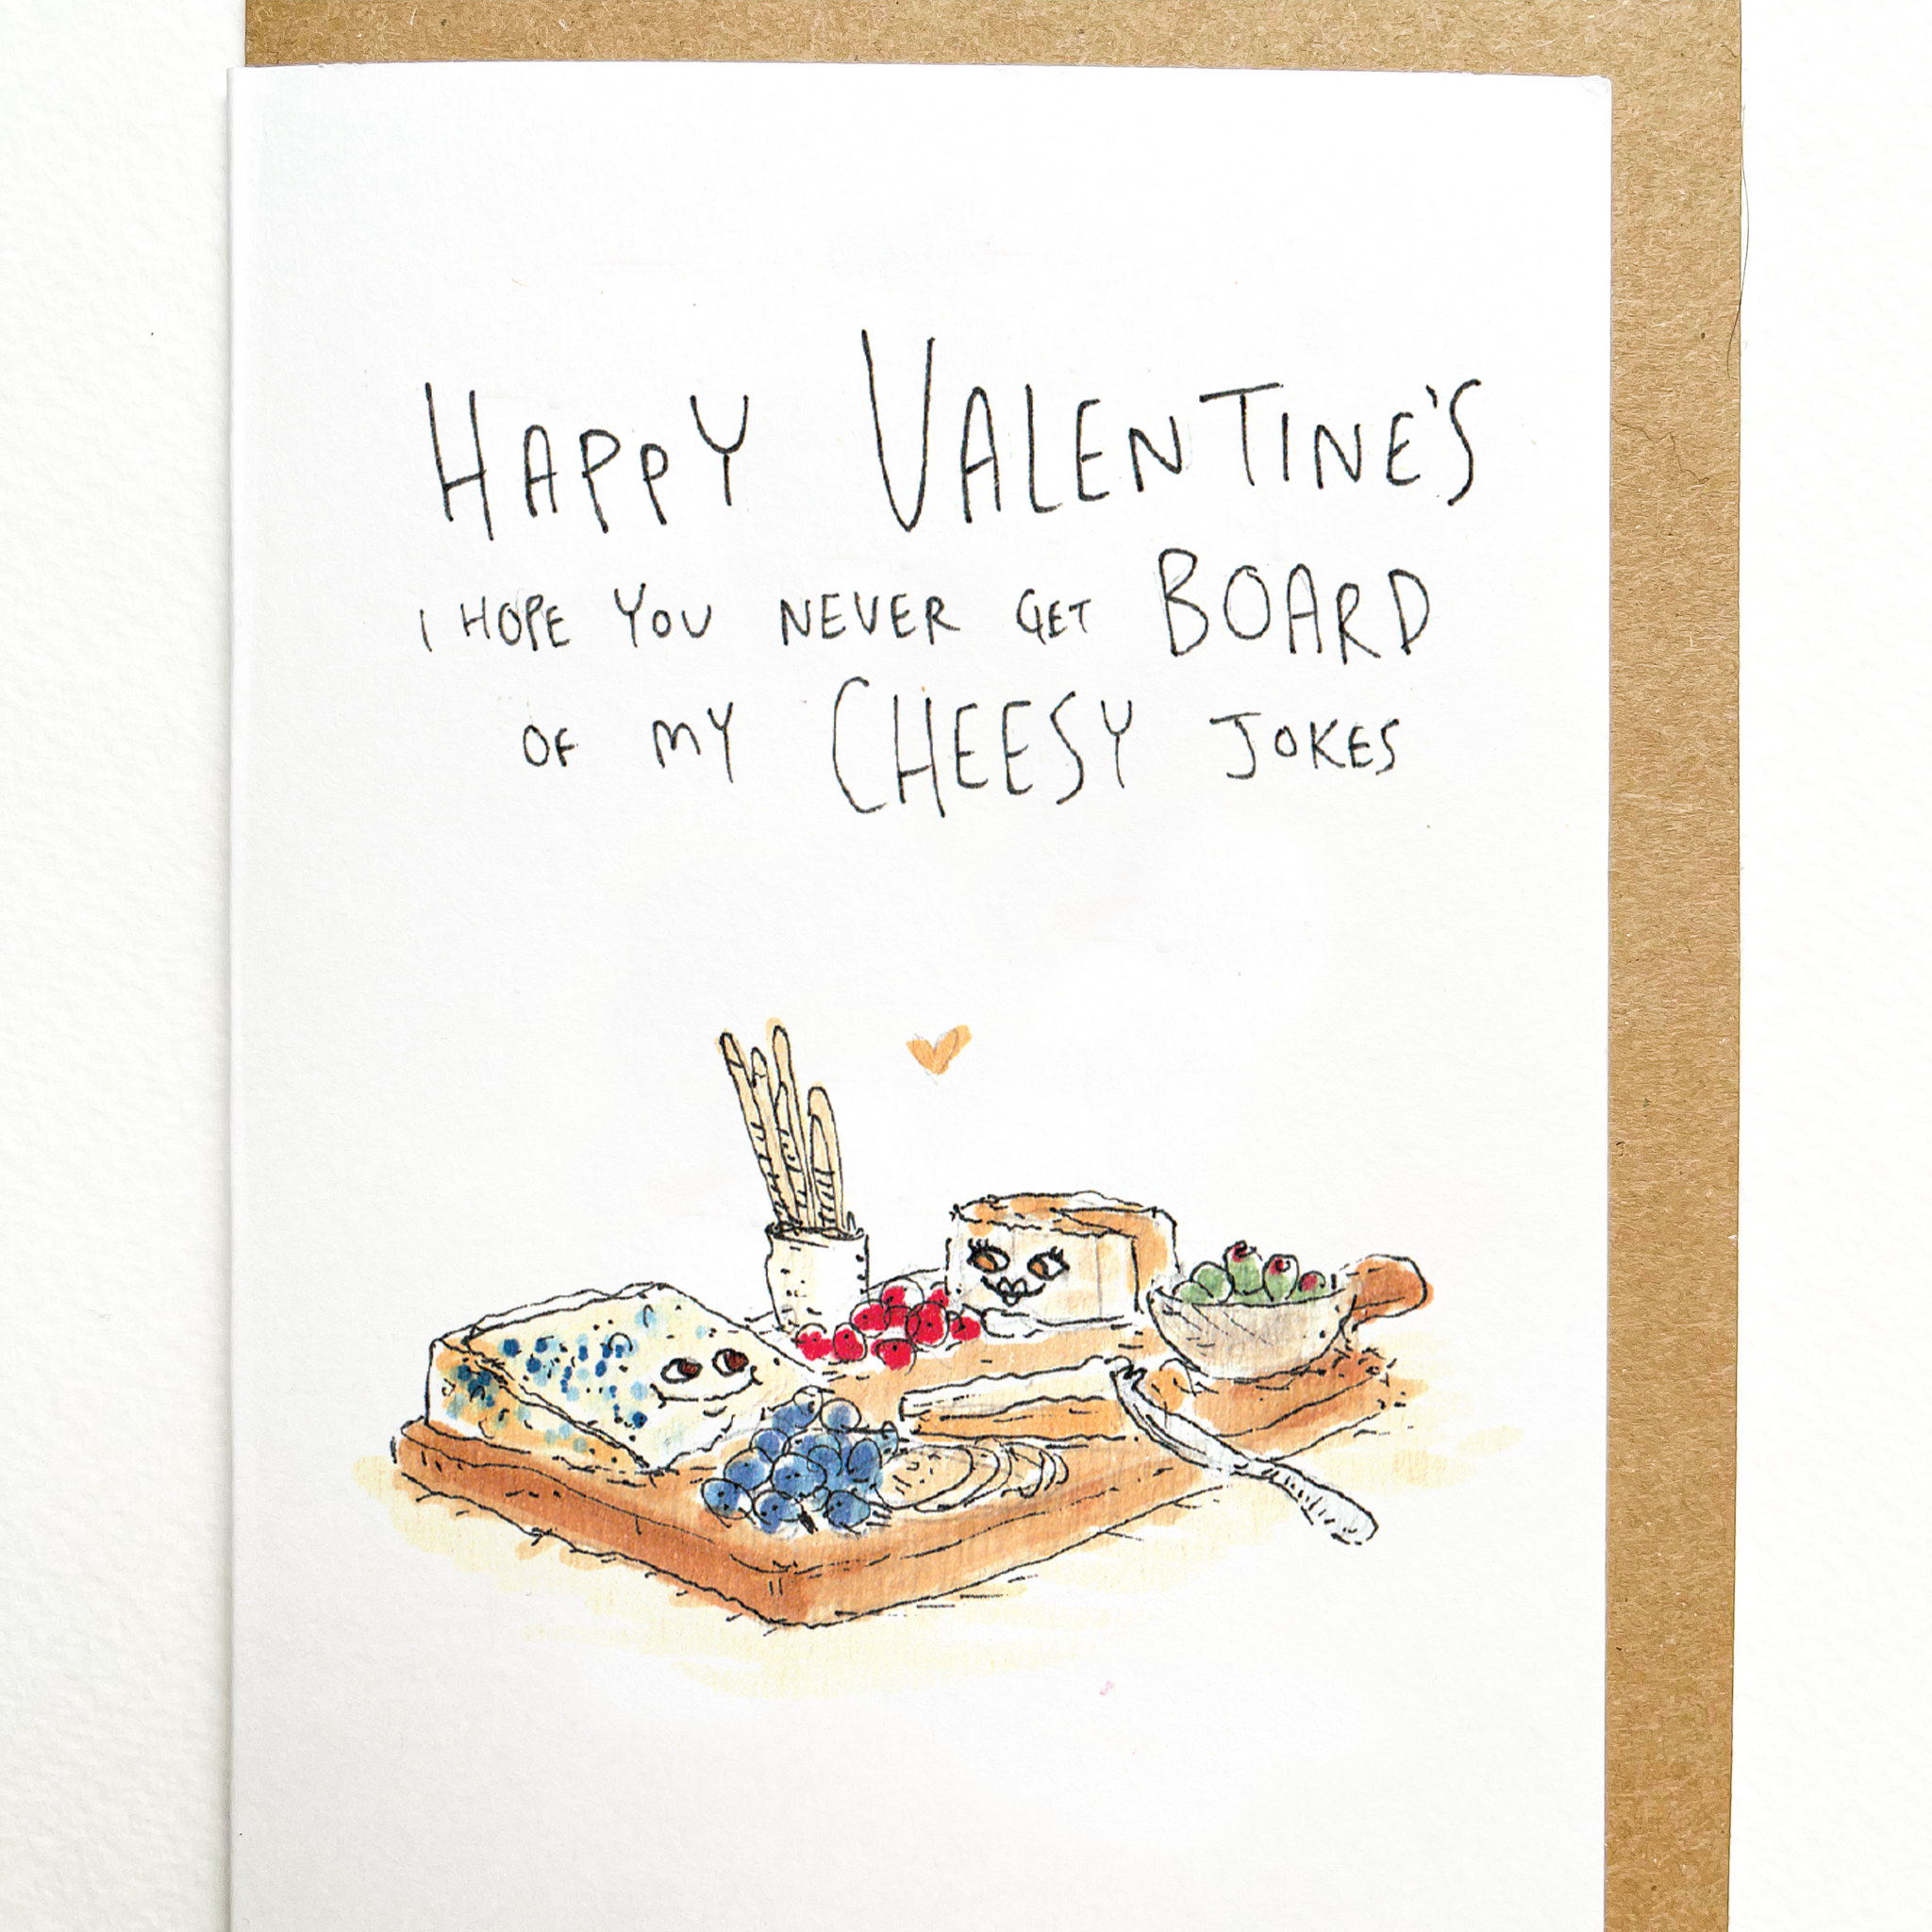 HAPPY VALENTINE'S
I HOPE YOU NEVER GET BOARD
OF MY CHEESY JOKES